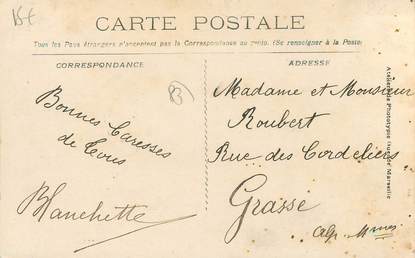 15€
CARTE POSTALE
Tous les Pays étrangers n'acceptent pas la Correspondance au recto. (Se renseigner à la Poste)
CORRESPONDANCE
ADRESSE
Bonnes Caresses
de Tous
Blanchette
Madame et Monsieur
Roubert
Rue des Cordeliers
Grasse
Alp. M mes
Phototypie
Marseille